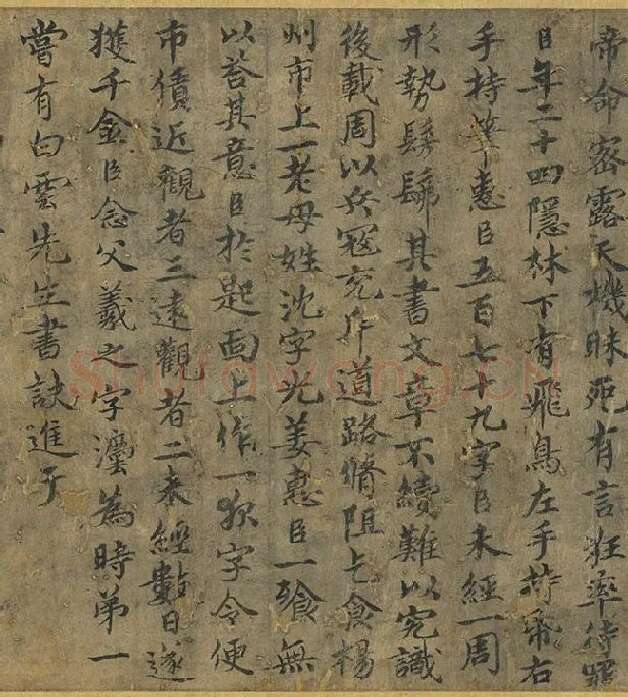 帝命密露天機昧死有言狂率待罪
臣年二十四隱林下有飛鳥左手持帋右
手持筆惠臣五百七十九字臣未經一周
形勢髣髴其書文章不續難以究識
後載周以兵寇充斥道路脩阻乞食揚
州市上一老母姓沈字光姜惠臣一飱無
以荅其意臣於匙面上作一夜字令便
市債近觀者三遠觀者二未經數日遂
獲千金臣念父羲之字灋為時弟一
嘗有白雲先生書訣進于
Shufawang.CN